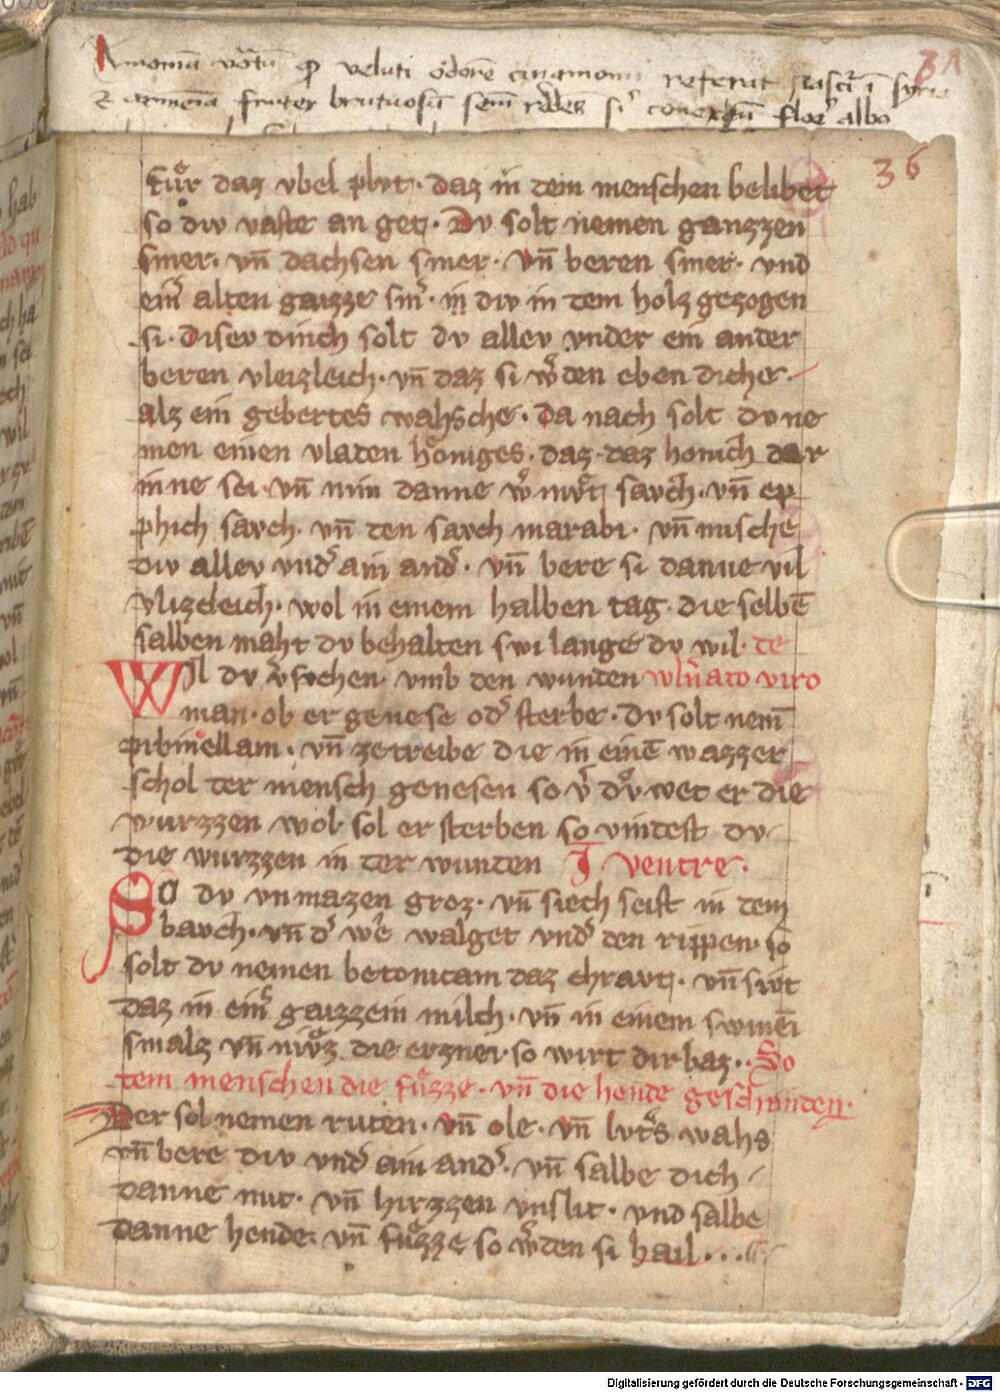 Amomū vocatū qᷓ veluti odorē cinamomi referat nascit᷑ ī syria
⁊ armenia frutex sem̄ reddēs
31
36
Fuͤr daz vbel plvt · daz in dem menschen belibet
so div vaste an get · Dv solt nemen ganszzen
smer · vn̄ dachsen smer · vn̄ beren smer · vnd
einˢ alten gaizze smˢ · in div in dem holz gezogen
si · diseu dinch solt dv alleu vnder ein ander
beren vleizleich · vn̄ daz si wˢden eben diche ·
alz ein gebertes wahsche · da nach solt dv ne
men einen vladen hoͤniges · daz · daz honich dar
inne sei · vn̄ nim danne wˢmuͦt savch · vn̄ ep
phich savch · vn̄ den savch marabi · vn̄ mische
div alleu vndˢ ain andˢ · vn̄ bere si danne vil
vlizcleich · wol in einem halben tag · die selbē
salben maht dv behalten swi lange dv wil · de
Wil dv vˢsvchen · vmb den wunden wlnˢato viro
man · ob er genese odˢ sterbe · dv solt nem̄
pibinellam · vn̄ zetreibe die in einē wazzer
schol der mensch genesen so vˢdoͤwet er die
wurzzen wol · sol er sterben so vindest dv
die wurzzen in der wunden J ventre ·
So dv vnmazen groz · vn̄ siech seist in dem
bavch · vn̄ dˢ wē walget vndˢ den rippen · so
solt dv nemen betonicam daz chravt · vn̄ sivt
daz in einˢ gaizzein milch · vn̄ in einem swinēi
smalz vn̄ nivͤz die erznei so wirt dir baz · · So
dem menschen die fuͤzze · vn̄ die hende geschrinden ·
Der sol nemen ruten · vn̄ ole · vn̄ lvtˢs wahs
vn̄ bere div vndˢ ain andˢ · vn̄ salbe dich
danne mit · vn̄ hirzzen vnslit · vnd salbe
danne hende vn̄ fuͤzze so wˢden si hail · · ·
Digitalisierung gefördert durch die Deutsche Forschungsgemeinschaft - DFG